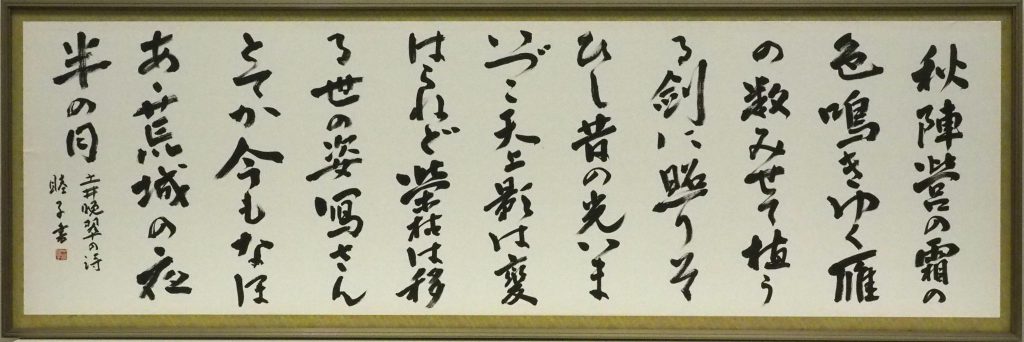 秋陣営の霜の
色鳴きゆく雁
の数みせて植う
る剣に照りそ
ひし昔の光いま
いづこ天上影は変
はらねど栄枯は移
る世の姿写さん
とてか今もなほ
あゝ荒城の夜
半の月
土井晩翠の詩
睦子書